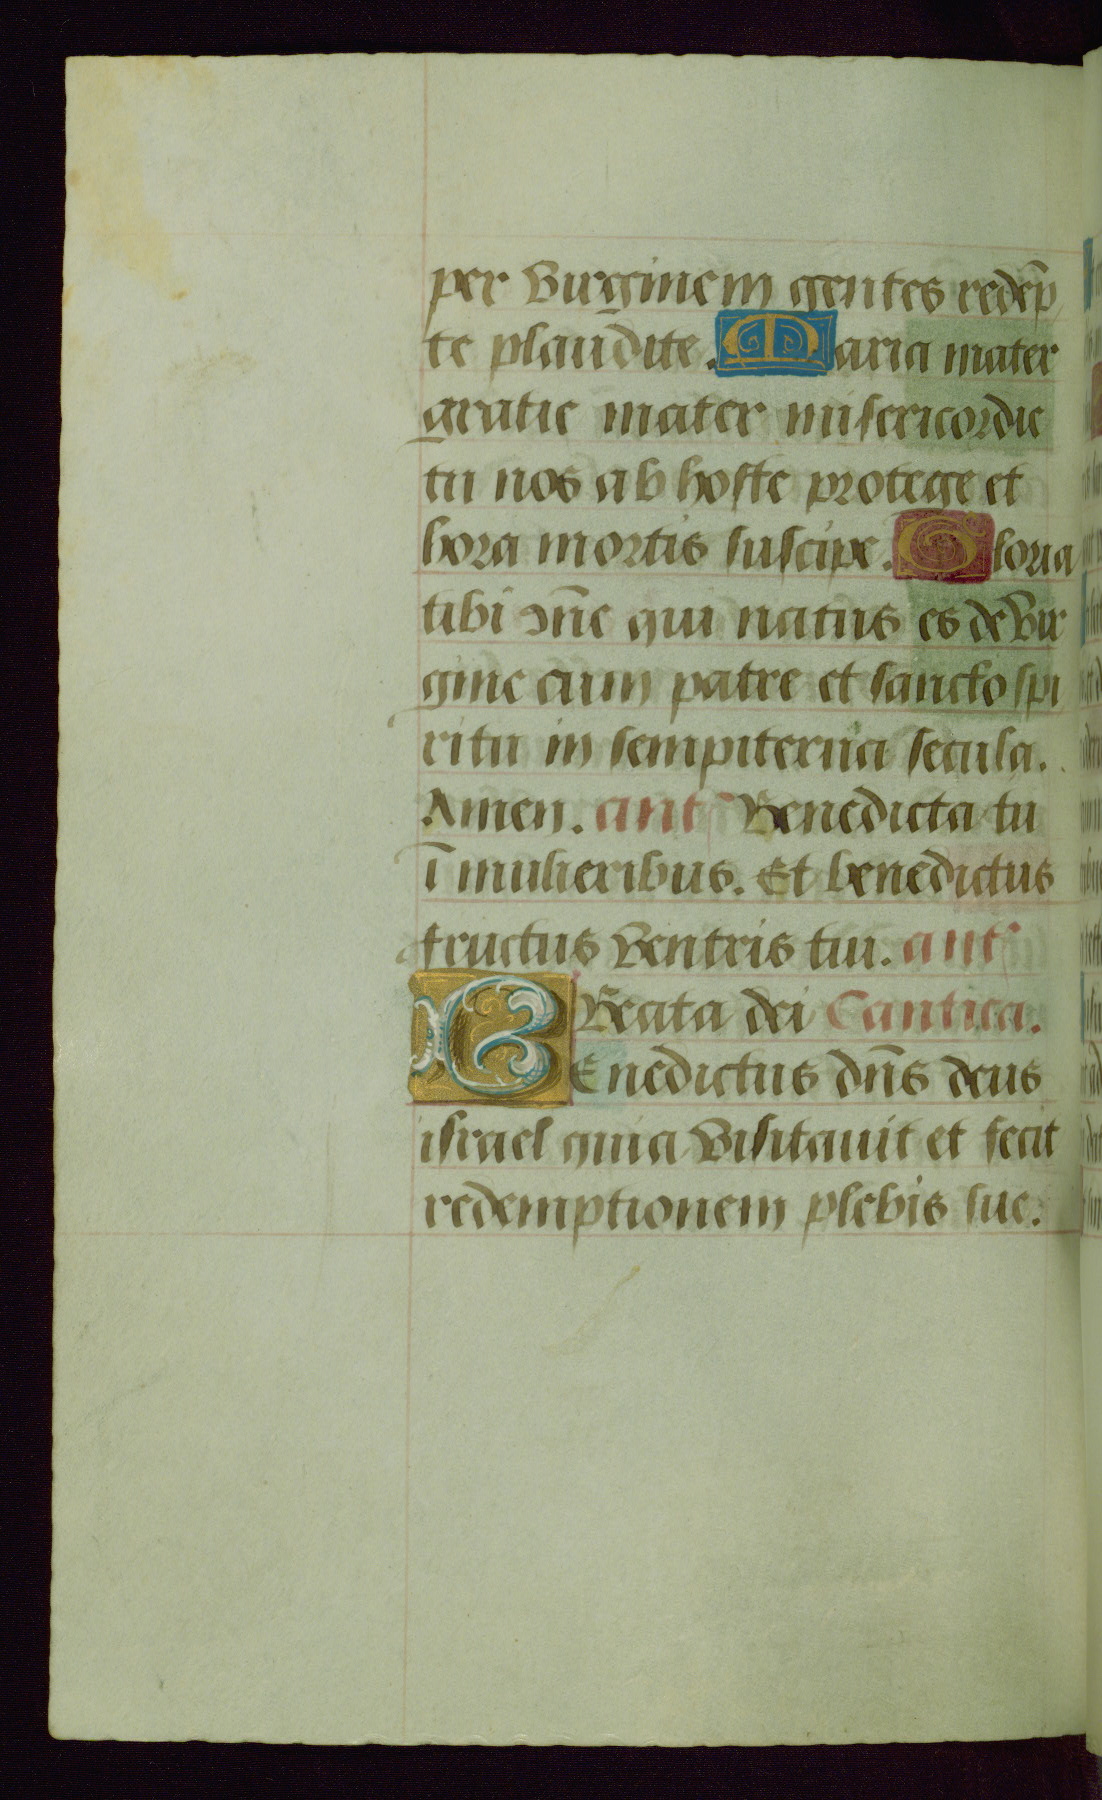 per virginem gentes redēp
te plaudite. Maria mater
gratie mater misericordie
tu nos ab hoste protege et
hora mortis suscipe. Gloria
tibi dñe qui natus es de vir
gine cum patre et sancto spi
ritu in sempiterna secula.
Amen. ant Benedicta tu
ī mulieribus. Et benedictus
fructus ventris tui. ant
Beata dei Cantica.
BEnedictus dñs deus
israel quia visitauit et fecit
redemptionem plebis sue.